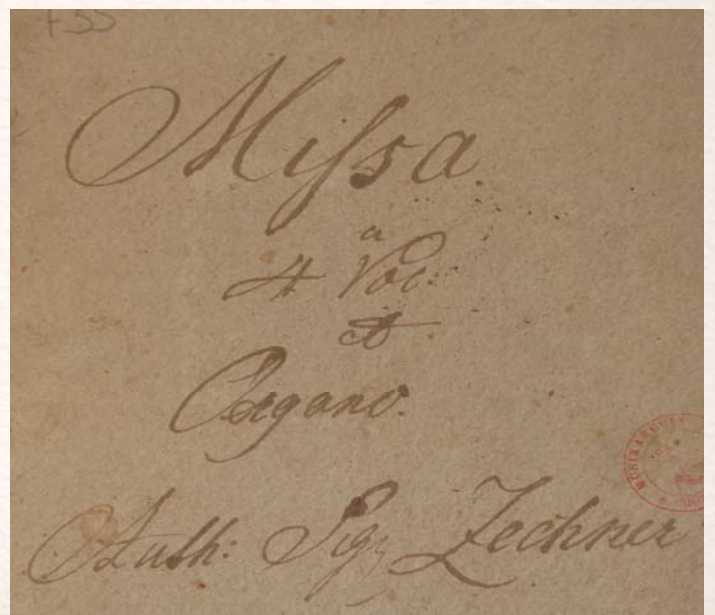 Missa
a
4 Voc:
et
Organo.
Auth: Sig: Zechner